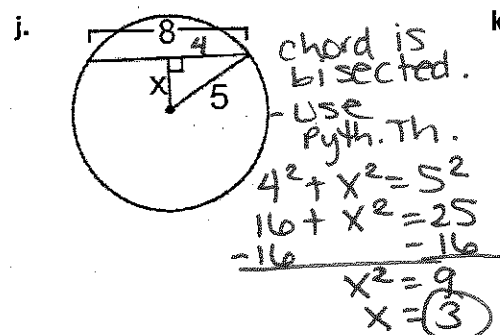 j.
k
8
4
x
5
chord is
bisected.
-use
Pyth. Th.
4² + x² = 5²
16 + x² = 25
-16 -16
x² = 9
x = 3